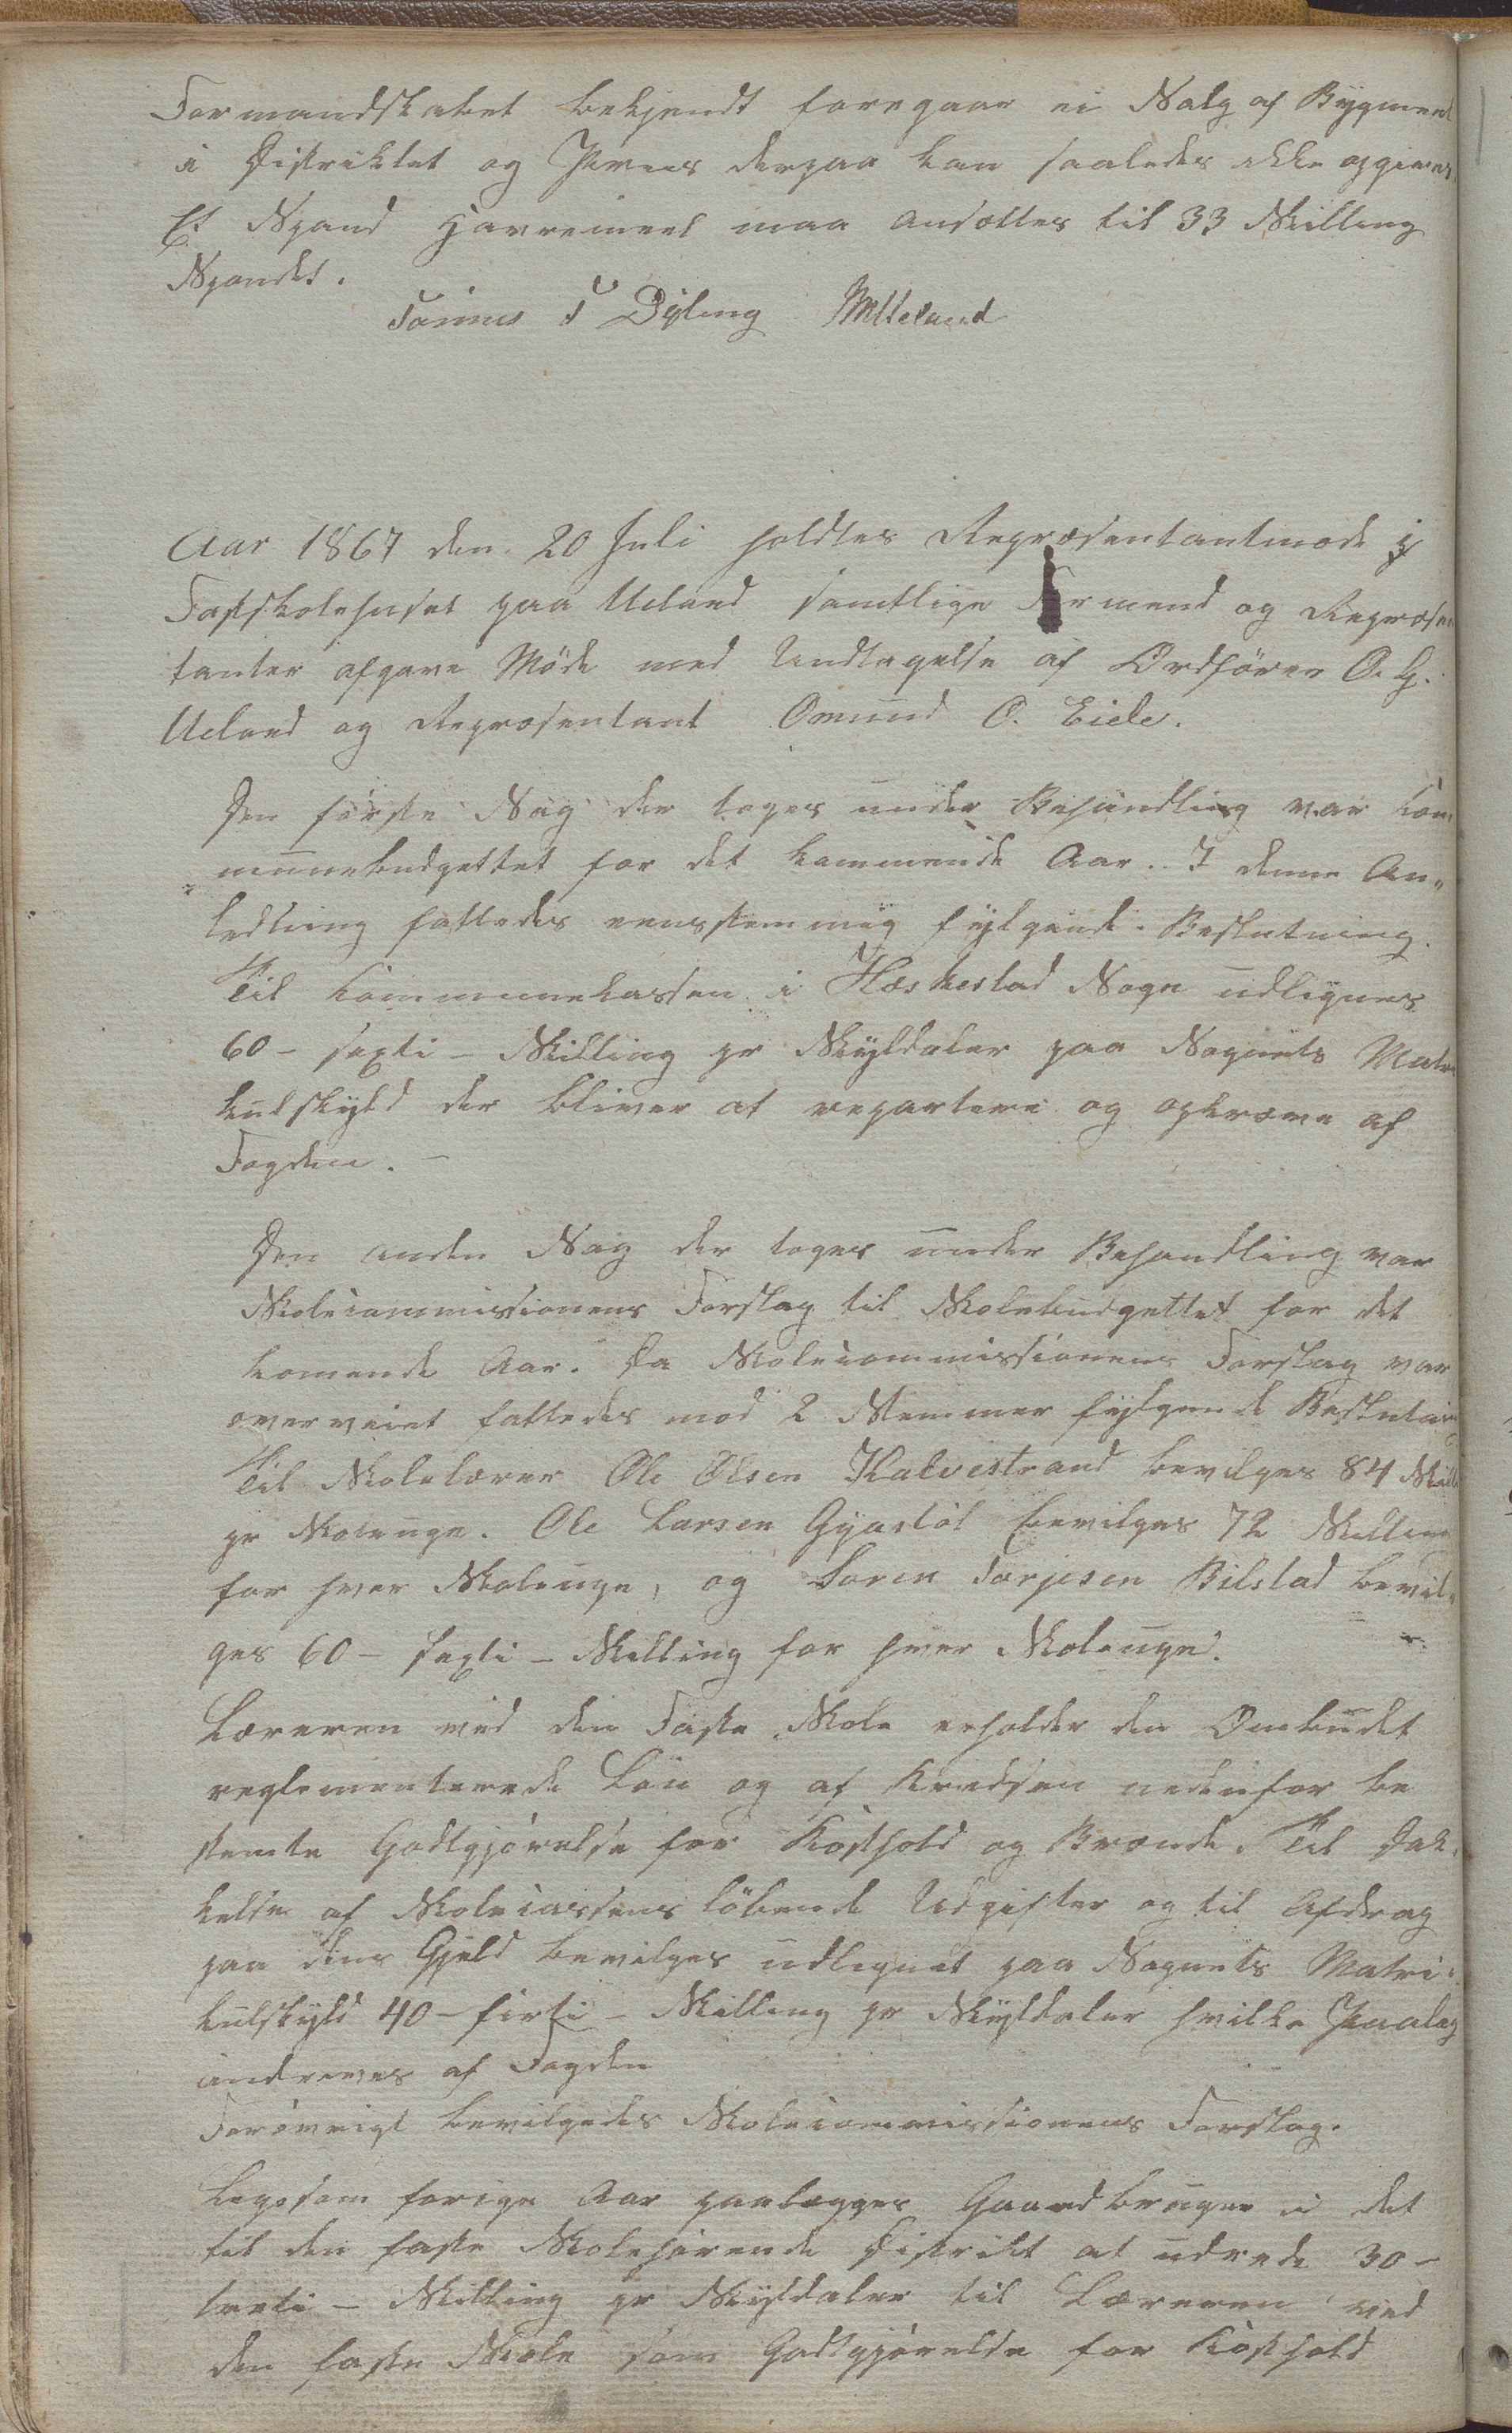 Formandskabet bekjendt foregaar ei Salg af Bygmeel
i Distriktet og Priis derpaa kan saaledes ikke opgives.
Et Spand Havremeel maa ansættes til 33 Skilling
Spandet.
Tønnes T Dyling Mælland
Aar 1867 den 20 Juli holdtes Repræsentantmøde i
Fastskolehuset paa Ueland samtlige Formænd og Repræsen
tanter afgave Møde med Undtagelse af Ordfører O. G.
Ueland og Repræsentant Omund O. Eide.
Den første Sag der toges under Behandling var Kom¬
munebudgettet for det kommende Aar. I denne An¬
ledning fattedes eensstemmig følgende Beslutning.
Til Kommunekassen i Heskestad Sogn udlignes
60 - sexti - Skilling pr Skylddaler paa Sognets Matri
kulskyld der bliver at repartere og opkræve af
Fogden. -
Den anden Sag der toges under Behandling var
Skolecommissionens Forslag til Skolebudgettet for det
komende Aar. Da Skolecommissionens Forslag var
overveiet fattedes mod 2 Stemmer følgende Beslutning
Til Skolelærer Ole Olsen Kalvestrand bevilges 84 Skill
pr Skoleuge. Ole Larsen Gyastøl bevilges 72 Skilling
for hver Skoleuge, og Søren Torjesen Bilstad bevil¬
ges 60 - sexti - Skilling for hver Skoleuge.
Læreren ved den Faste Skole erholder den Ombudet
reglementerede Løn og af Kredsen nedenfor be
stemte Godtgjørelse for Kosthold og Brænde. Til Dæk¬
kelse af Skolecassens løbende Udgifter og til Afdrag
paa dens Gjeld bevilges udlignet paa Sognets Matri¬
kulskyld 40 - firti - Skilling pr Skylddaler hvilke Paalæg
inddrives af Fogden
Forøvrigt bevilgedes Skolecommissionens Forslag.
Ligesom forige Aar paalægges Gaardbrugere i det
til den faste Skole hørende Distrikt at udrede 30 -
treti - Skilling pr Skylddaler til Læreren ved
den faste Skole som Godtgjørelse for Kosthold